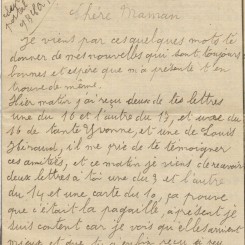 Chère Maman
Je viens par ces quelques mots te
donner de mes nouvelles qui sont toujours
bonnes et espère que m'a présente t'en
trouve de même.
Hier matin j'ai reçu deux de tes lettres
une du 10 et l'autre du 13, et une du
16 de tante Yvonne, et une de Louis
il me prie de te témoigner
ces amitiés, et ce matin je viens de recevoir
deux lettres à toi une du 9 et l'autre
du 14 et une carte du 10, ça prouve
que c'était la pagaille, à présent je
suis content car je vois qu'elles arrivent
et que tu a enfin reçu